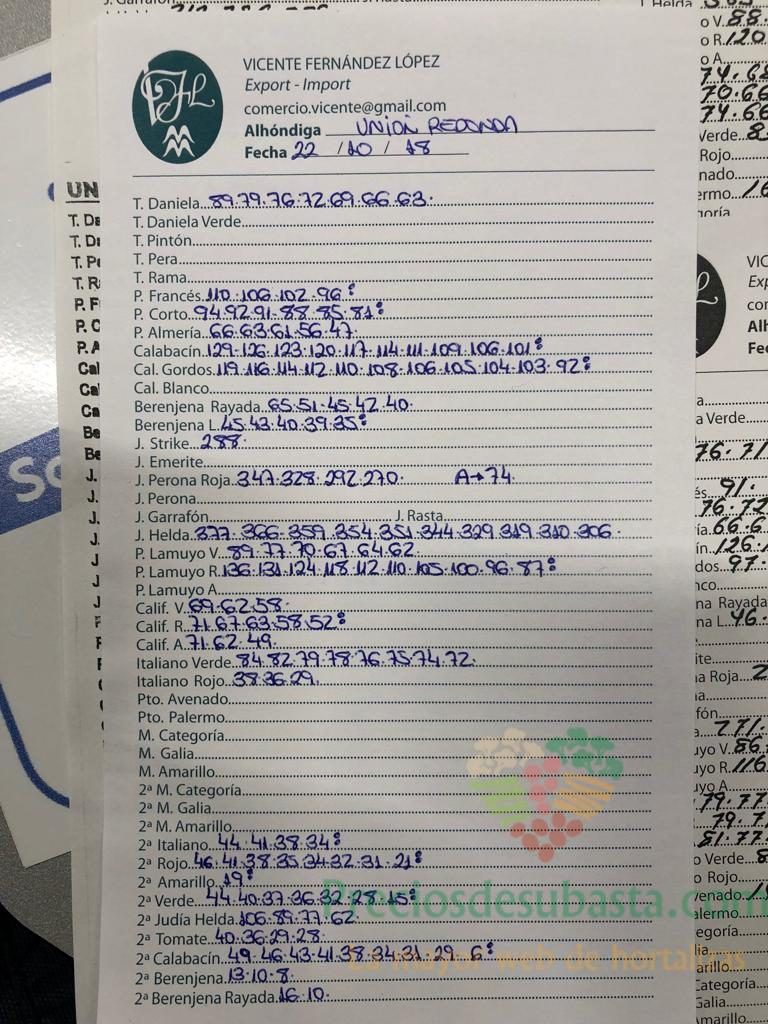 VICENTE FERNÁNDEZ LÓPEZ
Export - Import
comercio.vicente@gmail.com
Alhóndiga UNION REDONDA
Fecha 22 / 10 / 18
T. Daniela 89.79.76.72.69.66.63.
T. Daniela Verde
T. Pintón
T. Pera
T. Rama
P. Francés 110.106.102.96
P. Corto 94.92.91.88.85.81
P. Almería 66.63.61.56.47.
Calabacín 129.126.123.120.117.114.111.109.106.101
Cal. Gordos 119.116.114.112.110.108.106.105.104.103.92
Cal. Blanco
Berenjena Rayada 65.51.45.42.40.
Berenjena L. 45.43.40.39.35
J. Strike 288.
J. Emerite
J. Perona Roja 347.328.292.270. A→74.
J. Perona
J. Garrafón J. Rasta
J. Helda 377.366.359.354.351.344.329.319.310.306.
P. Lamuyo V. 89.77.70.67.64.62.
P. Lamuyo R. 136.131.124.118.112.110.105.100.96.87
P. Lamuyo A
Calif. V. 69.62.58.
Calif. R. 71.67.63.58.52
Calif. A. 71.62.49.
Italiano Verde 84.82.79.78.76.75.74.72.
Italiano Rojo 38.36.29.
Pto. Avenado
Pto. Palermo
M. Categoría
M. Galia
M. Amarillo
2ª M. Categoría
2ª M. Galia
2ª M. Amarillo
2ª Italiano 44.41.38.34
2ª Rojo 46.41.38.35.34.32.31.21
2ª Amarillo 19
2ª Verde 44.40.37.36.32.28.15
2ª Judía Helda 106.89.77.62
2ª Tomate 40.36.29.28.
2ª Calabacín 49.46.43.41.38.34.31.29.6
2ª Berenjena 13.10.8.
2ª Berenjena Rayada 16.10.
Preciosdesubasta.com
La mayor web de hortalizas